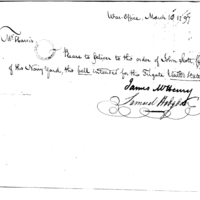 War-Office, March 10 1797
Mr Harris
Please to deliver to the order of John Scott
of the Navy Yard, the bell intended for the Frigate United States
James McHenry
Samuel Hodgdon